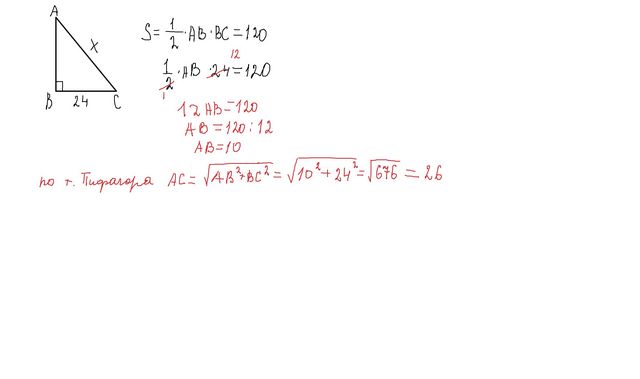 A
x
B 24 C
S = 1/2 · AB · BC = 120
12
1/2 · AB · 24 = 120
1
12 AB = 120
AB = 120 : 12
AB = 10
по т. Пифагора AC = √(AB² + BC²) = √(10² + 24²) = √676 = 26